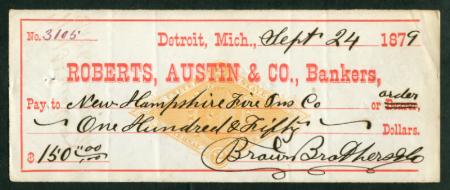 No. 3105
Detroit, Mich., Sept 24 1879
ROBERTS, AUSTIN & CO., Bankers,
Pay to New Hampshire Fire Ins Co or order
One Hundred & Fifty Dollars.
$150 00/100
Brown Brothers & Co